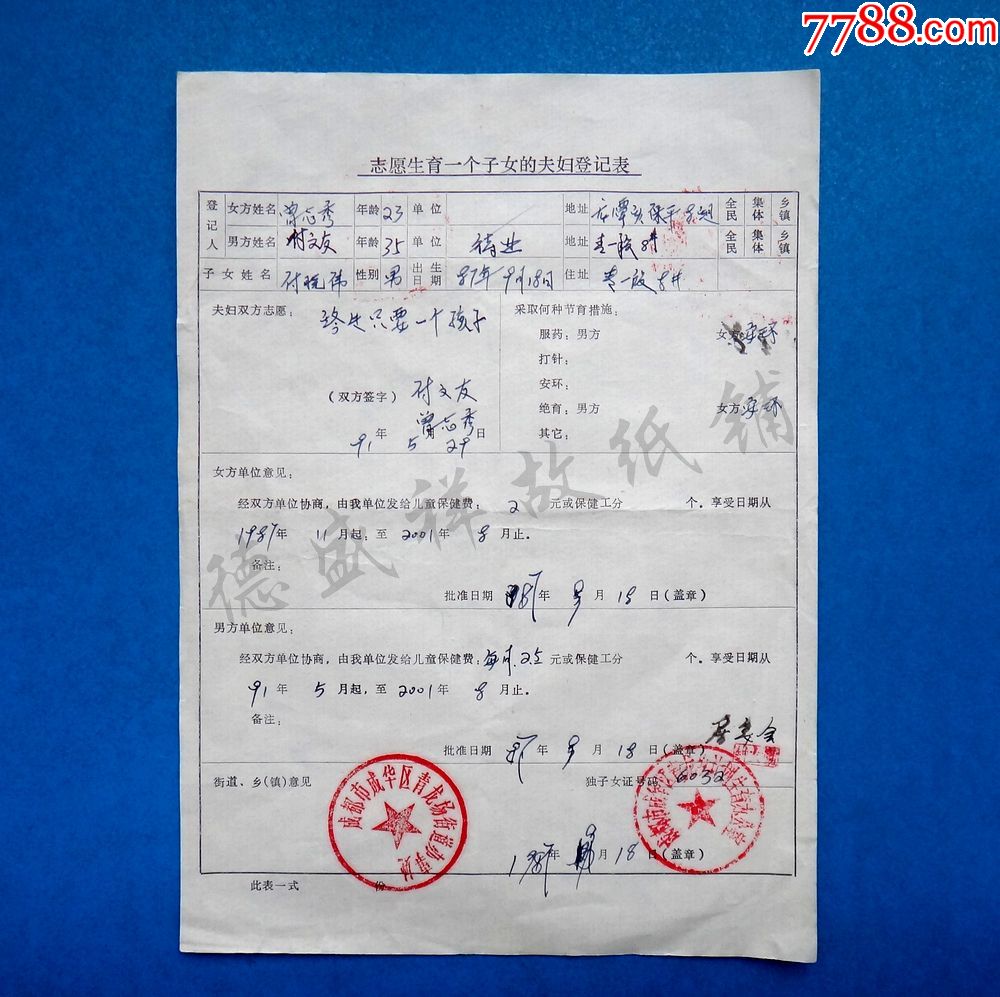 7788.com
志愿生育一个子女的夫妇登记表
登记人 女方姓名 曾志秀 年龄 23 单位 地址 全民 集体 乡镇
男方姓名 付文友 年龄 35 单位 待业 地址 全民 集体 乡镇
子女姓名 付晓伟 性别 男 出生日期 87年9月18日 住址
夫妇双方志愿: 终生只要一个孩子
采取何种节育措施:
服药:男方 女方 安环
打针:
安环:
绝育:男方 女方 安环
其它:
(双方签字) 付文友
曾志秀
91 年 5 29 日
女方单位意见:
经双方单位协商,由我单位发给儿童保健费: 2 元或保健工分 个。享受日期从
1987年 11月起,至 2001年 8月止。
备注:
批准日期 87年 月 18日(盖章)
男方单位意见:
经双方单位协商,由我单位发给儿童保健费: 每月2.5 元或保健工分 个。享受日期从
91年 5月起,至 2001年 8月止。
备注:
居委会
批准日期 87年 9月 18日(盖章)
街道、乡(镇)意见
独子女证号码: 6032
成都市成华区青龙场街道办事处
1987年 9月 18日(盖章)
此表一式 份
德盛祥故纸铺